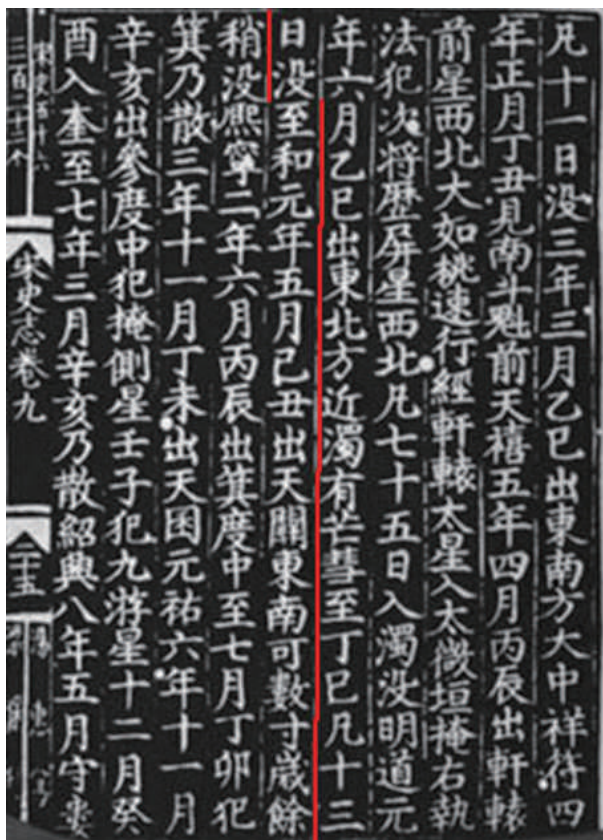 凡十一日没三年三月乙巳出東南方大中祥符四
年正月丁丑見南斗魁前天禧五年四月丙辰出軒轅
前星西北大如桃速行經軒轅太星入太微垣掩右執
法犯次将歷屏星西北凡七十五日入濁没明道元
年六月乙巳出東北方近濁有芒彗至丁巳凡十三
日没至和元年五月己丑出天關東南可數寸歲餘
稍没熈寧二年六月丙辰出箕度中至七月丁卯犯
箕乃散三年十一月丁未出天囷元祐六年十一月
辛亥出參度中犯掩側星壬子犯九游星十二月癸
酉入奎至七年三月辛亥乃散紹興八年五月守婁
宋史志卷九
二十五